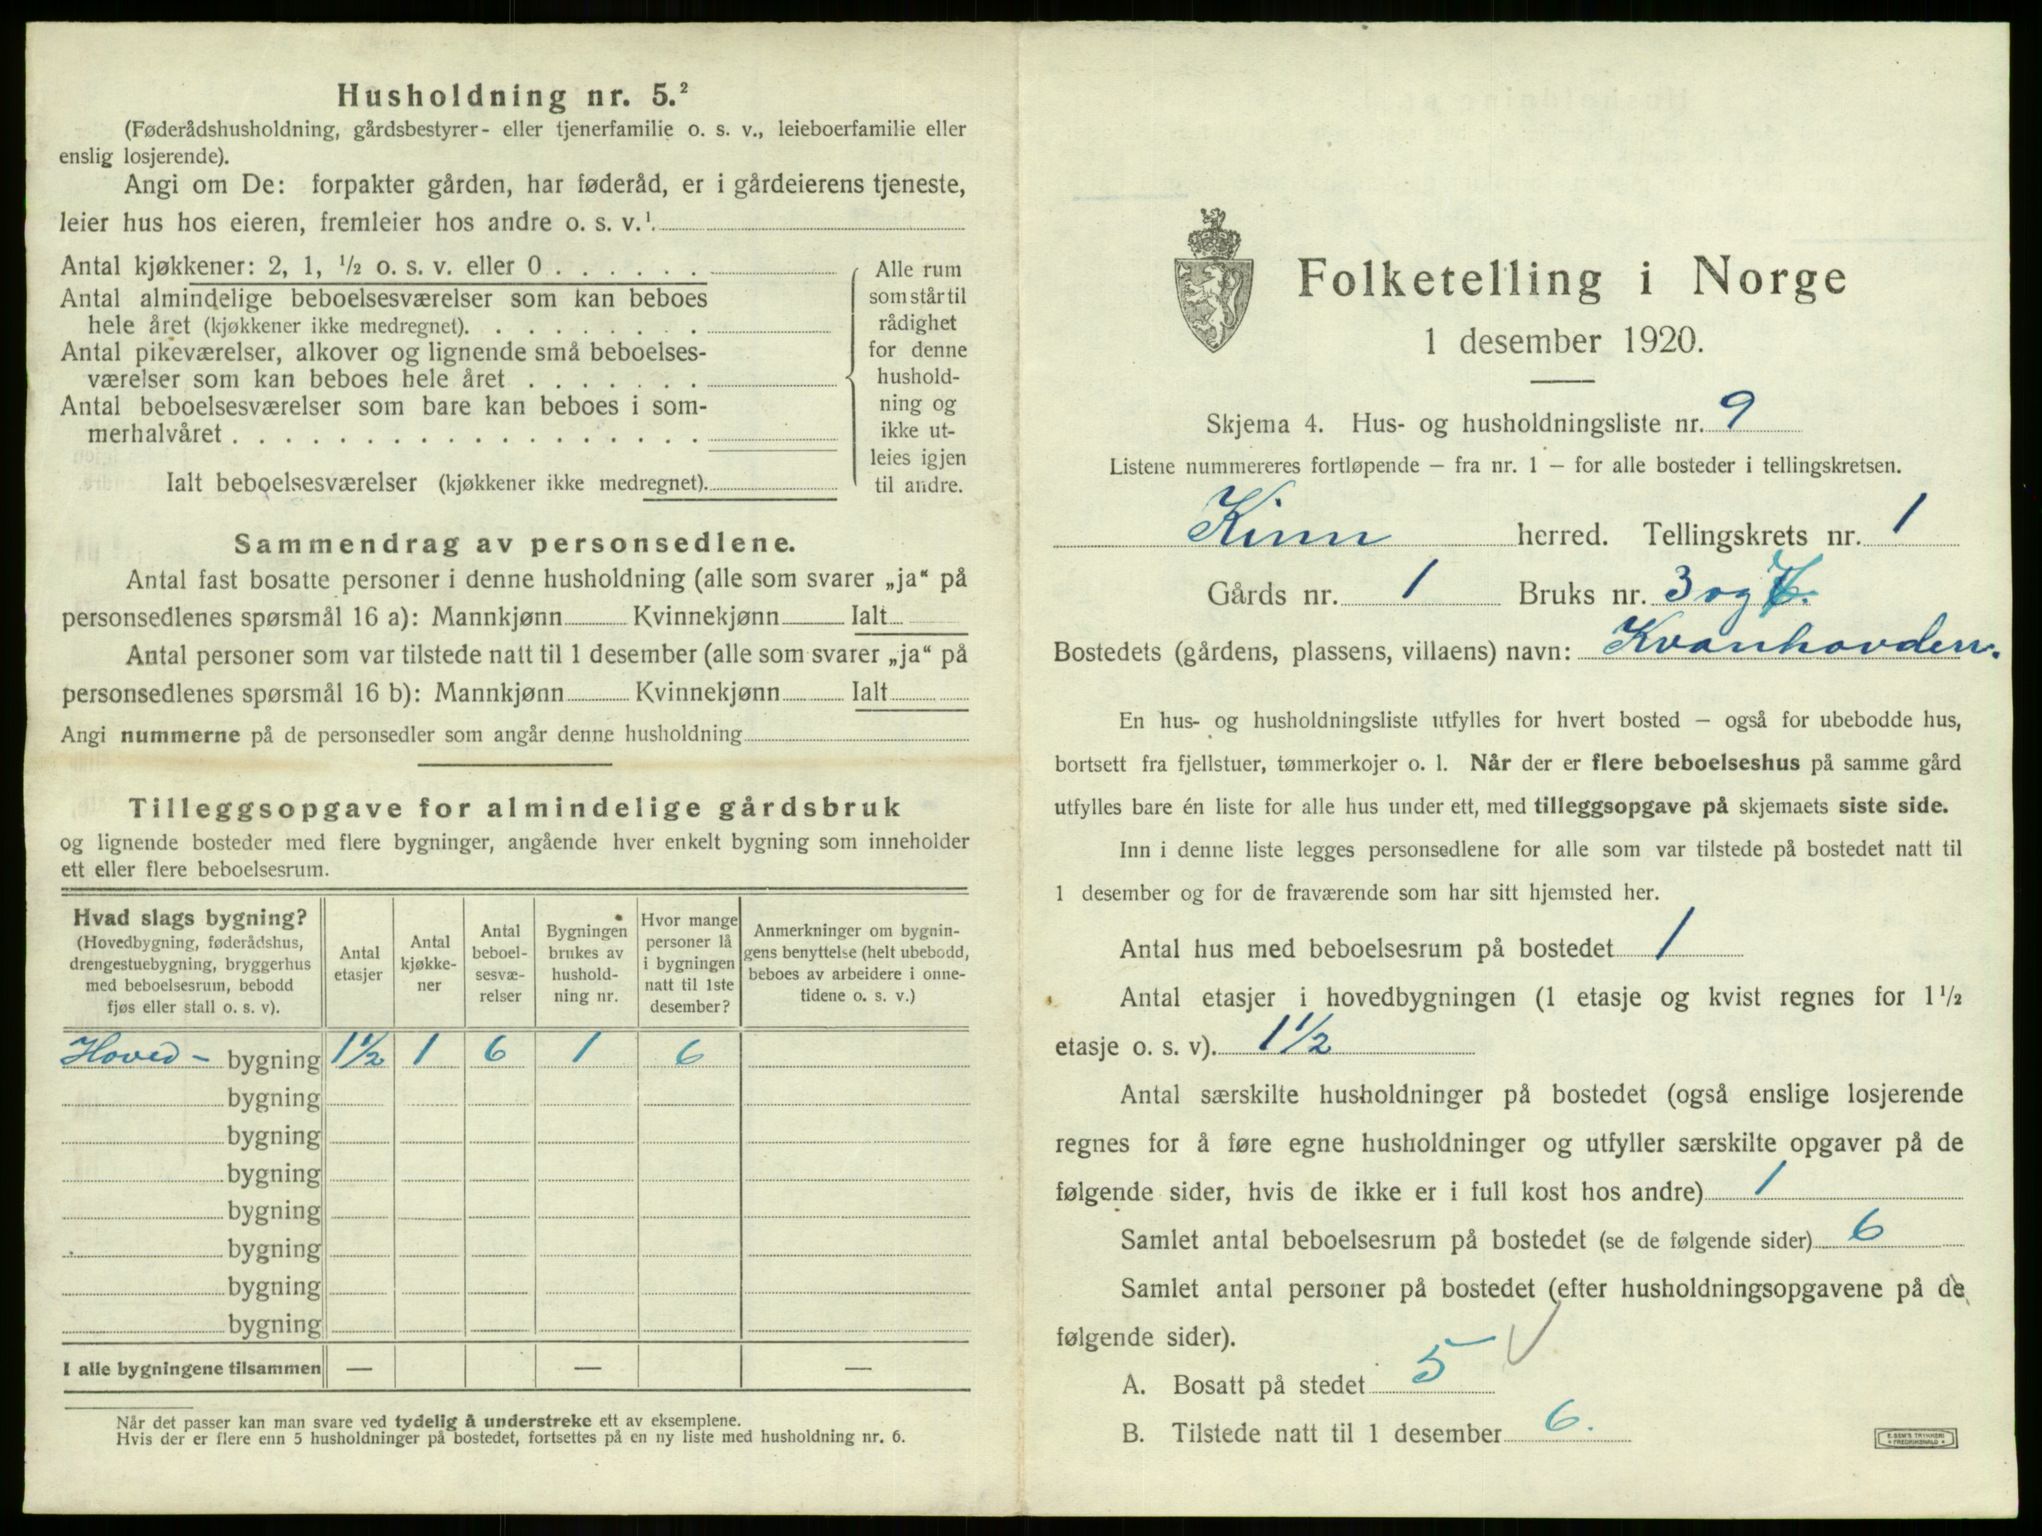 Husholdning nr. 5.²
(Føderådshusholdning, gårdsbestyrer- eller tjenerfamilie o. s. v., leieboerfamilie eller
enslig losjerende).
Angi om De: forpakter gården, har føderåd, er i gårdeierens tjeneste,
leier hus hos eieren, fremleier hos andre o. s. v.¹.
Antal kjøkkener: 2, 1, ½ o. s. v. eller 0 . . . . . .
Antal almindelige beboelsesværelser som kan beboes
hele året (kjøkkener ikke medregnet). . . . . . . . .
Antal pikeværelser, alkover og lignende små beboelses-
værelser som kan beboes hele året . . . . . . .
Antal beboelsesværelser som bare kan beboes i som-
merhalvåret . . . . . . . . . . . . . . . . . .
Ialt beboelsesværelser (kjøkkener ikke medregnet).
Alle rum
som står til
rådighet
for denne
hushold-
ning og
ikke ut-
leies igjen
til andre.
Sammendrag av personsedlene.
Antal fast bosatte personer i denne husholdning (alle som svarer „ja“ på
personsedlenes spørsmål 16 a): Mannkjønn Kvinnekjønn Ialt
Antal personer som var tilstede natt til 1 desember (alle som svarer „ja“ på
personsedlenes spørsmål 16 b): Mannkjønn Kvinnekjønn Ialt
Angi nummerne på de personsedler som angår denne husholdning
Tilleggsopgave for almindelige gårdsbruk
og lignende bosteder med flere bygninger, angående hver enkelt bygning som inneholder
ett eller flere beboelsesrum.
Hvad slags bygning?
(Hovedbygning, føderådshus,
drengestuebygning, bryggerhus
med beboelsesrum, bebodd
fjøs eller stall o. s. v).
Antal
etasjer
Antal
kjøkke-
ner
Antal
beboel-
sesvæ-
relser
Bygningen
brukes av
hushold-
ning nr.
Hvor mange
personer lå
i bygningen
natt til 1ste
desember?
Anmerkninger om bygnin-
gens benyttelse (helt ubebodd,
beboes av arbeidere i onne-
tidene o. s. v.)
Hoved- bygning 1½ 1 6 1 6
bygning
bygning
bygning
bygning
bygning
bygning
bygning
I alle bygningene tilsammen — — —
Når det passer kan man svare ved tydelig å understreke ett av eksemplene.
Hvis der er flere enn 5 husholdninger på bostedet, fortsettes på en ny liste med husholdning nr. 6.
Folketelling i Norge
1 desember 1920.
Skjema 4. Hus- og husholdningsliste nr. 9
Listene nummereres fortløpende — fra nr. 1 — for alle bosteder i tellingskretsen.
Kinn herred. Tellingskrets nr. 1
Gårds nr. 1 Bruks nr. 3 og
Bostedets (gårdens, plassens, villaens) navn: Kvanhovden.
En hus- og husholdningsliste utfylles for hvert bosted — også for ubebodde hus,
bortsett fra fjellstuer, tømmerkojer o. l. Når der er flere beboelseshus på samme gård
utfylles bare én liste for alle hus under ett, med tilleggsopgave på skjemaets siste side.
Inn i denne liste legges personsedlene for alle som var tilstede på bostedet natt til
1 desember og for de fraværende som har sitt hjemsted her.
Antal hus med beboelsesrum på bostedet 1
Antal etasjer i hovedbygningen (1 etasje og kvist regnes for 1½
etasje o. s. v). 1½
Antal særskilte husholdninger på bostedet (også enslige losjerende
regnes for å føre egne husholdninger og utfyller særskilte opgaver på de
følgende sider, hvis de ikke er i full kost hos andre) 1
Samlet antal beboelsesrum på bostedet (se de følgende sider) 6
Samlet antal personer på bostedet (efter husholdningsopgavene på de
følgende sider).
A. Bosatt på stedet 5
B. Tilstede natt til 1 desember 6.
E. SEM'S TRYKKERI
FREDRIKSHALD